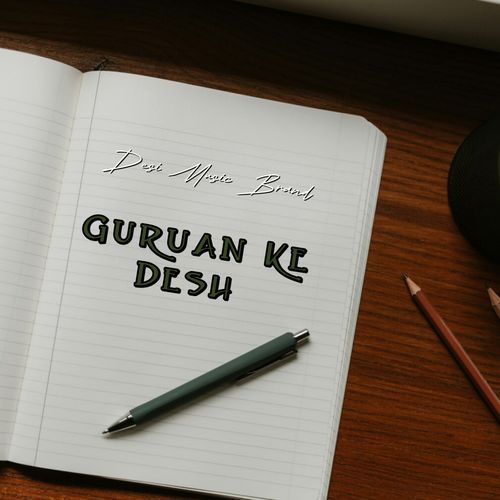 Desi Music Brand
GURUAN KE
DESH